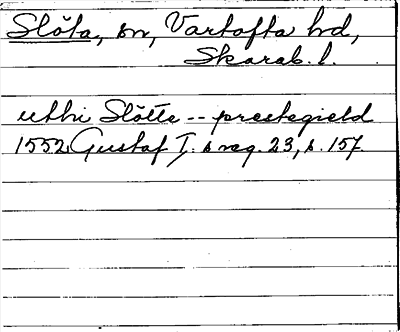 Slöta, sn, Vartofta hd,
Skarab. l.
uthi Slötte -- prestegield
1552 Gustaf I. s reg. 23, s. 157.